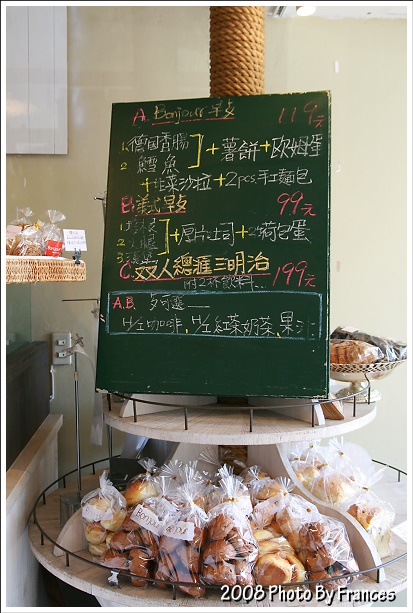 A. Bonjour 早餐 119元
1. 德国香腸
2 鱈魚
+ 薯餅 + 欧姆蛋
+ 生菜沙拉 + 2pcs 手工麵包
B. 美式早餐 99元
1.
2. 火腿
3.
+ 厚片吐司 + 2荷包蛋
C. 双人總滙三明治 199元
附2杯飲料...
A.B. 另可選 ——
H/I 咖啡, H/I 紅茶.奶茶, 果汁
Bonjour
2008 Photo By Frances